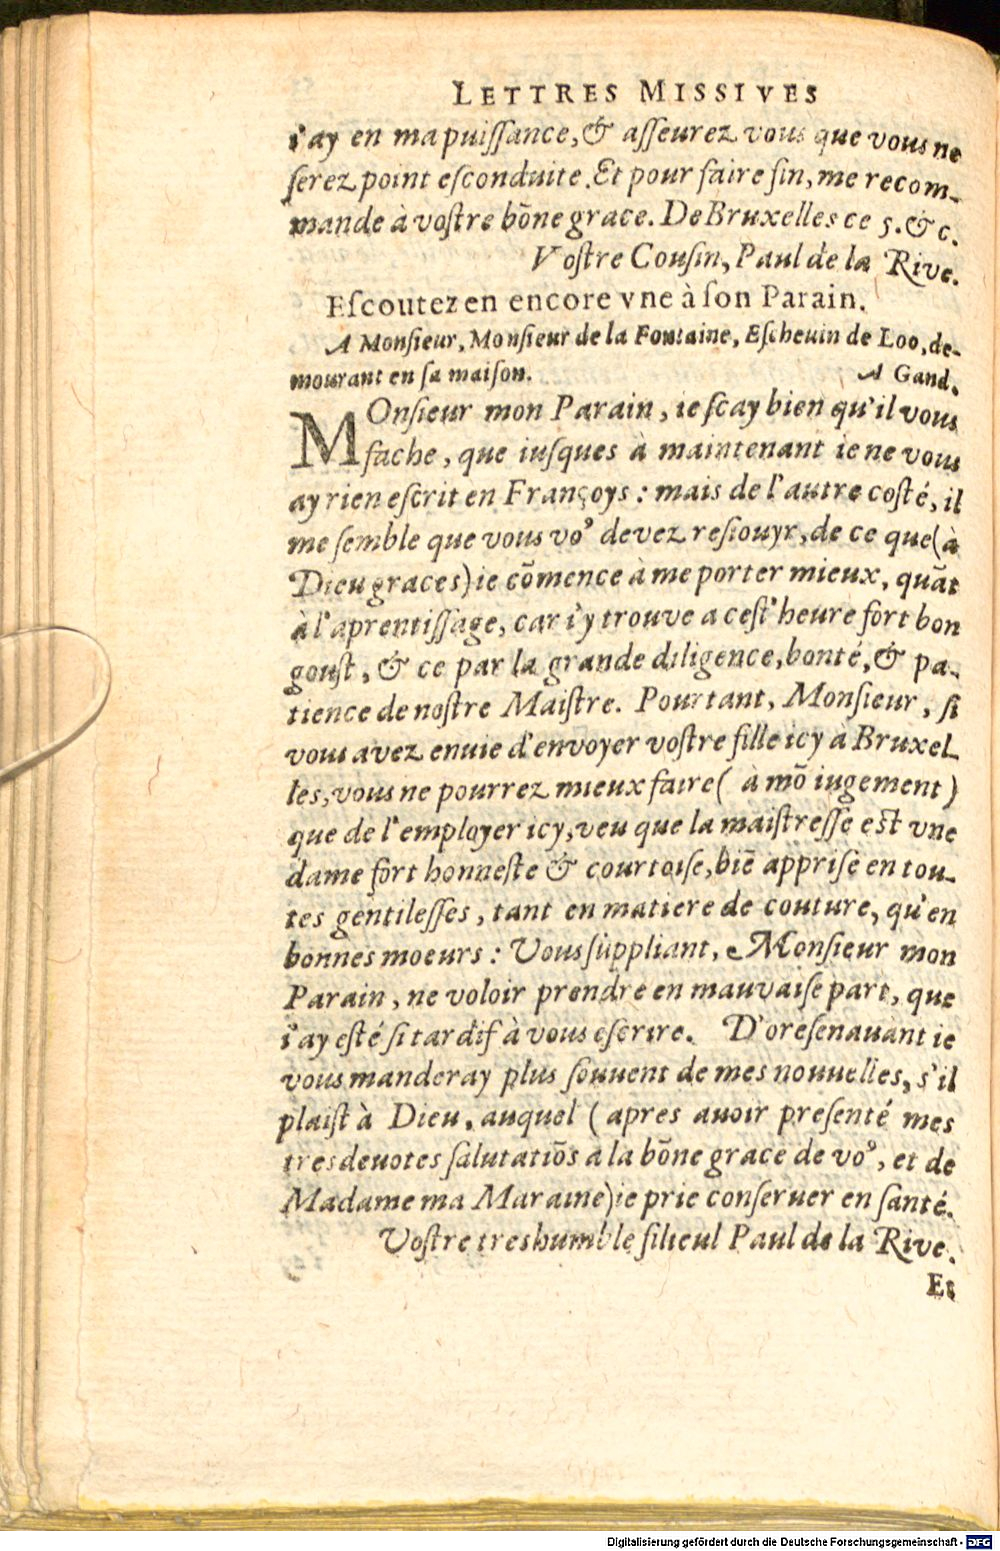 LETTRES MISSIVES
i'ay en ma puissance, & asseurez vous que vous ne
serez point esconduite. Et pour faire fin, me recom-
mande à vostre bõne grace. De Bruxelles ce 5. &c.
Vostre Cousin, Paul de la Rive.
Escoutez en encore vne à son Parain.
A Monsieur, Monsieur de la Fontaine, Escheuin de Loo, de-
mourant en sa maison. A Gand.
MOnsieur mon Parain, ie sçay bien qu'il vous
fache, que iusques à maintenant ie ne vous
ay rien escrit en Françoys : mais de l'autre costé, il
me semble que vous vo⁹ devez resiouyr, de ce que (à
Dieu graces) ie cõmence à me porter mieux, quãt
à l'aprentissage, car i'y trouve a cest' heure fort bon
goust, & ce par la grande diligence, bonté, & pa-
tience de nostre Maistre. Pourtant, Monsieur, si
vous avez enuie d'envoyer vostre fille icy à Bruxel-
les, vous ne pourrez mieux faire ( à mõ iugement )
que de l'employer icy, veu que la maistresse est vne
dame fort honneste & courtoise, biẽ apprise en tou-
tes gentilesses, tant en matiere de couture, qu'en
bonnes moeurs : Vous suppliant, Monsieur mon
Parain, ne voloir prendre en mauvaise part, que
i'ay esté si tardif à vous escrire. D'oresenauant ie
vous manderay plus souuent de mes nouuelles, s'il
plaist à Dieu, auquel ( apres auoir presenté mes
tresdeuotes salutatiõs a la bõne grace de vo⁹, et de
Madame ma Maraine) ie prie conseruer en santé.
Vostre treshumble filieul Paul de la Rive.
Es
Digitalisierung gefördert durch die Deutsche Forschungsgemeinschaft - DFG